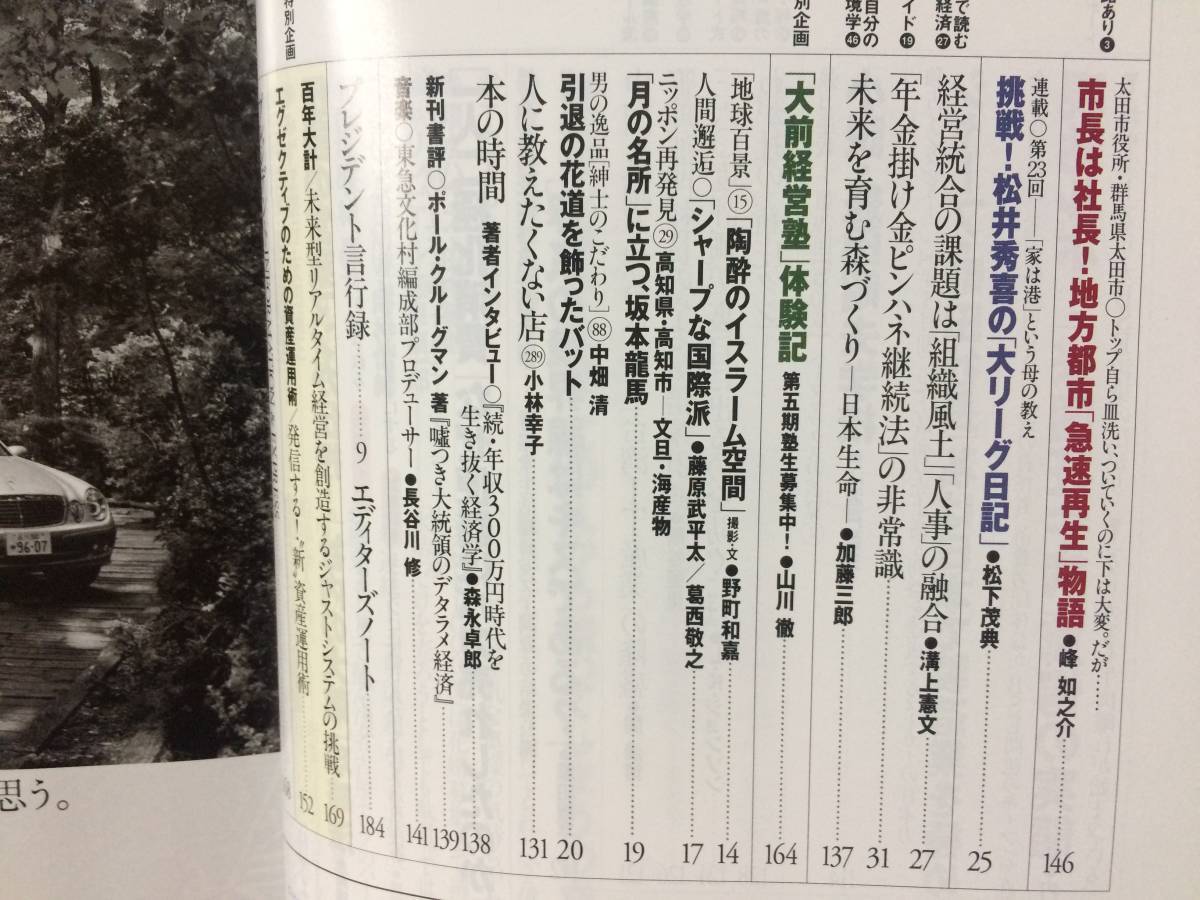 あり❸
太田市役所・群馬県太田市〇トップ自ら皿洗い、ついていくのに下は大変。だが……
市長は社長!地方都市「急速再生」物語●峰 如之介
146
連載〇第23回──「家は港」という母の教え
挑戦!松井秀喜の「大リーグ日記」●松下茂典
25
で読む
経済㉗
経営統合の課題は「組織風土」「人事」の融合●溝上憲文
27
イド⓳
「年金掛け金ピンハネ継続法」の非常識
31
自分の
境学㊻
未来を育む森づくり―日本生命―●加藤三郎
137
別企画
「大前経営塾」体験記 第五期塾生募集中!●山川 徹
164
「地球百景」⑮「陶酔のイスラーム空間」撮影・文●野町和嘉
14
人間邂逅〇「シャープな国際派」●藤原武平太/葛西敬之
17
ニッポン再発見㉙高知県・高知市―文旦・海産物
「月の名所」に立つ、坂本龍馬
19
男の逸品「紳士のこだわり」(88)中畑 清
引退の花道を飾ったバット
20
人に教えたくない店(289)小林幸子
131
本の時間 著者インタビュー〇『続・年収300万円時代を
生き抜く経済学』●森永卓郎
138
新刊書評〇ポール・クルーグマン 著『嘘つき大統領のデタラメ経済』
139
音楽〇東急文化村編成部プロデューサー●長谷川 修
141
プレジデント言行録……9 エディターズノート
184
特別企画
百年大計/未来型リアルタイム経営を創造するジャストシステムの挑戦
169
エグゼクティブのための資産運用術/発信する!“新”資産運用術
152
96-07
思う。